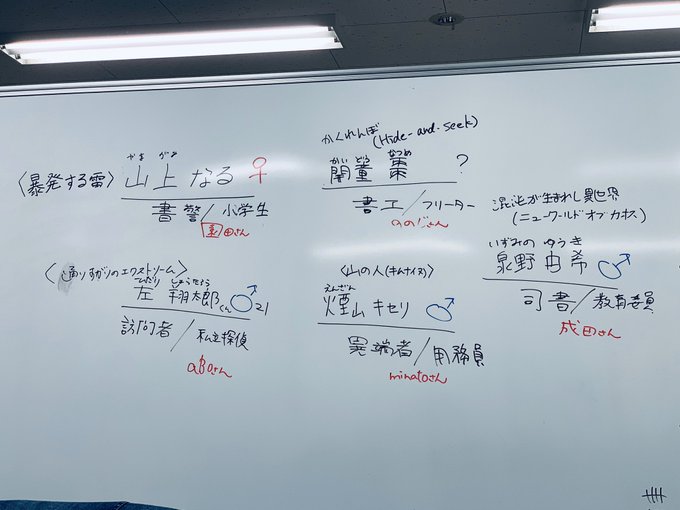 やま がみ
〈暴発する雷〉 山上 なる ♀
書警/小学生
田さん
かくれんぼ (Hide-and-seek)
かい どう なつめ
開童 棗 ?
書工/フリーター
さん
混沌が生まれし異世界
(ニューワールドオブカオス)
いずみの ゆうき
泉野 由希 ♂
司書/教育委員
成田さん
〈通りすがりのエクストリーム〉
ひだり しょうたろう
左 翔太郎くん ♂ 21
訪問者/私立探偵
さん
〈山の人(キムナイヌ)〉
えんざん
煙山 キセリ ♂
異端者/用務員
minatoさん